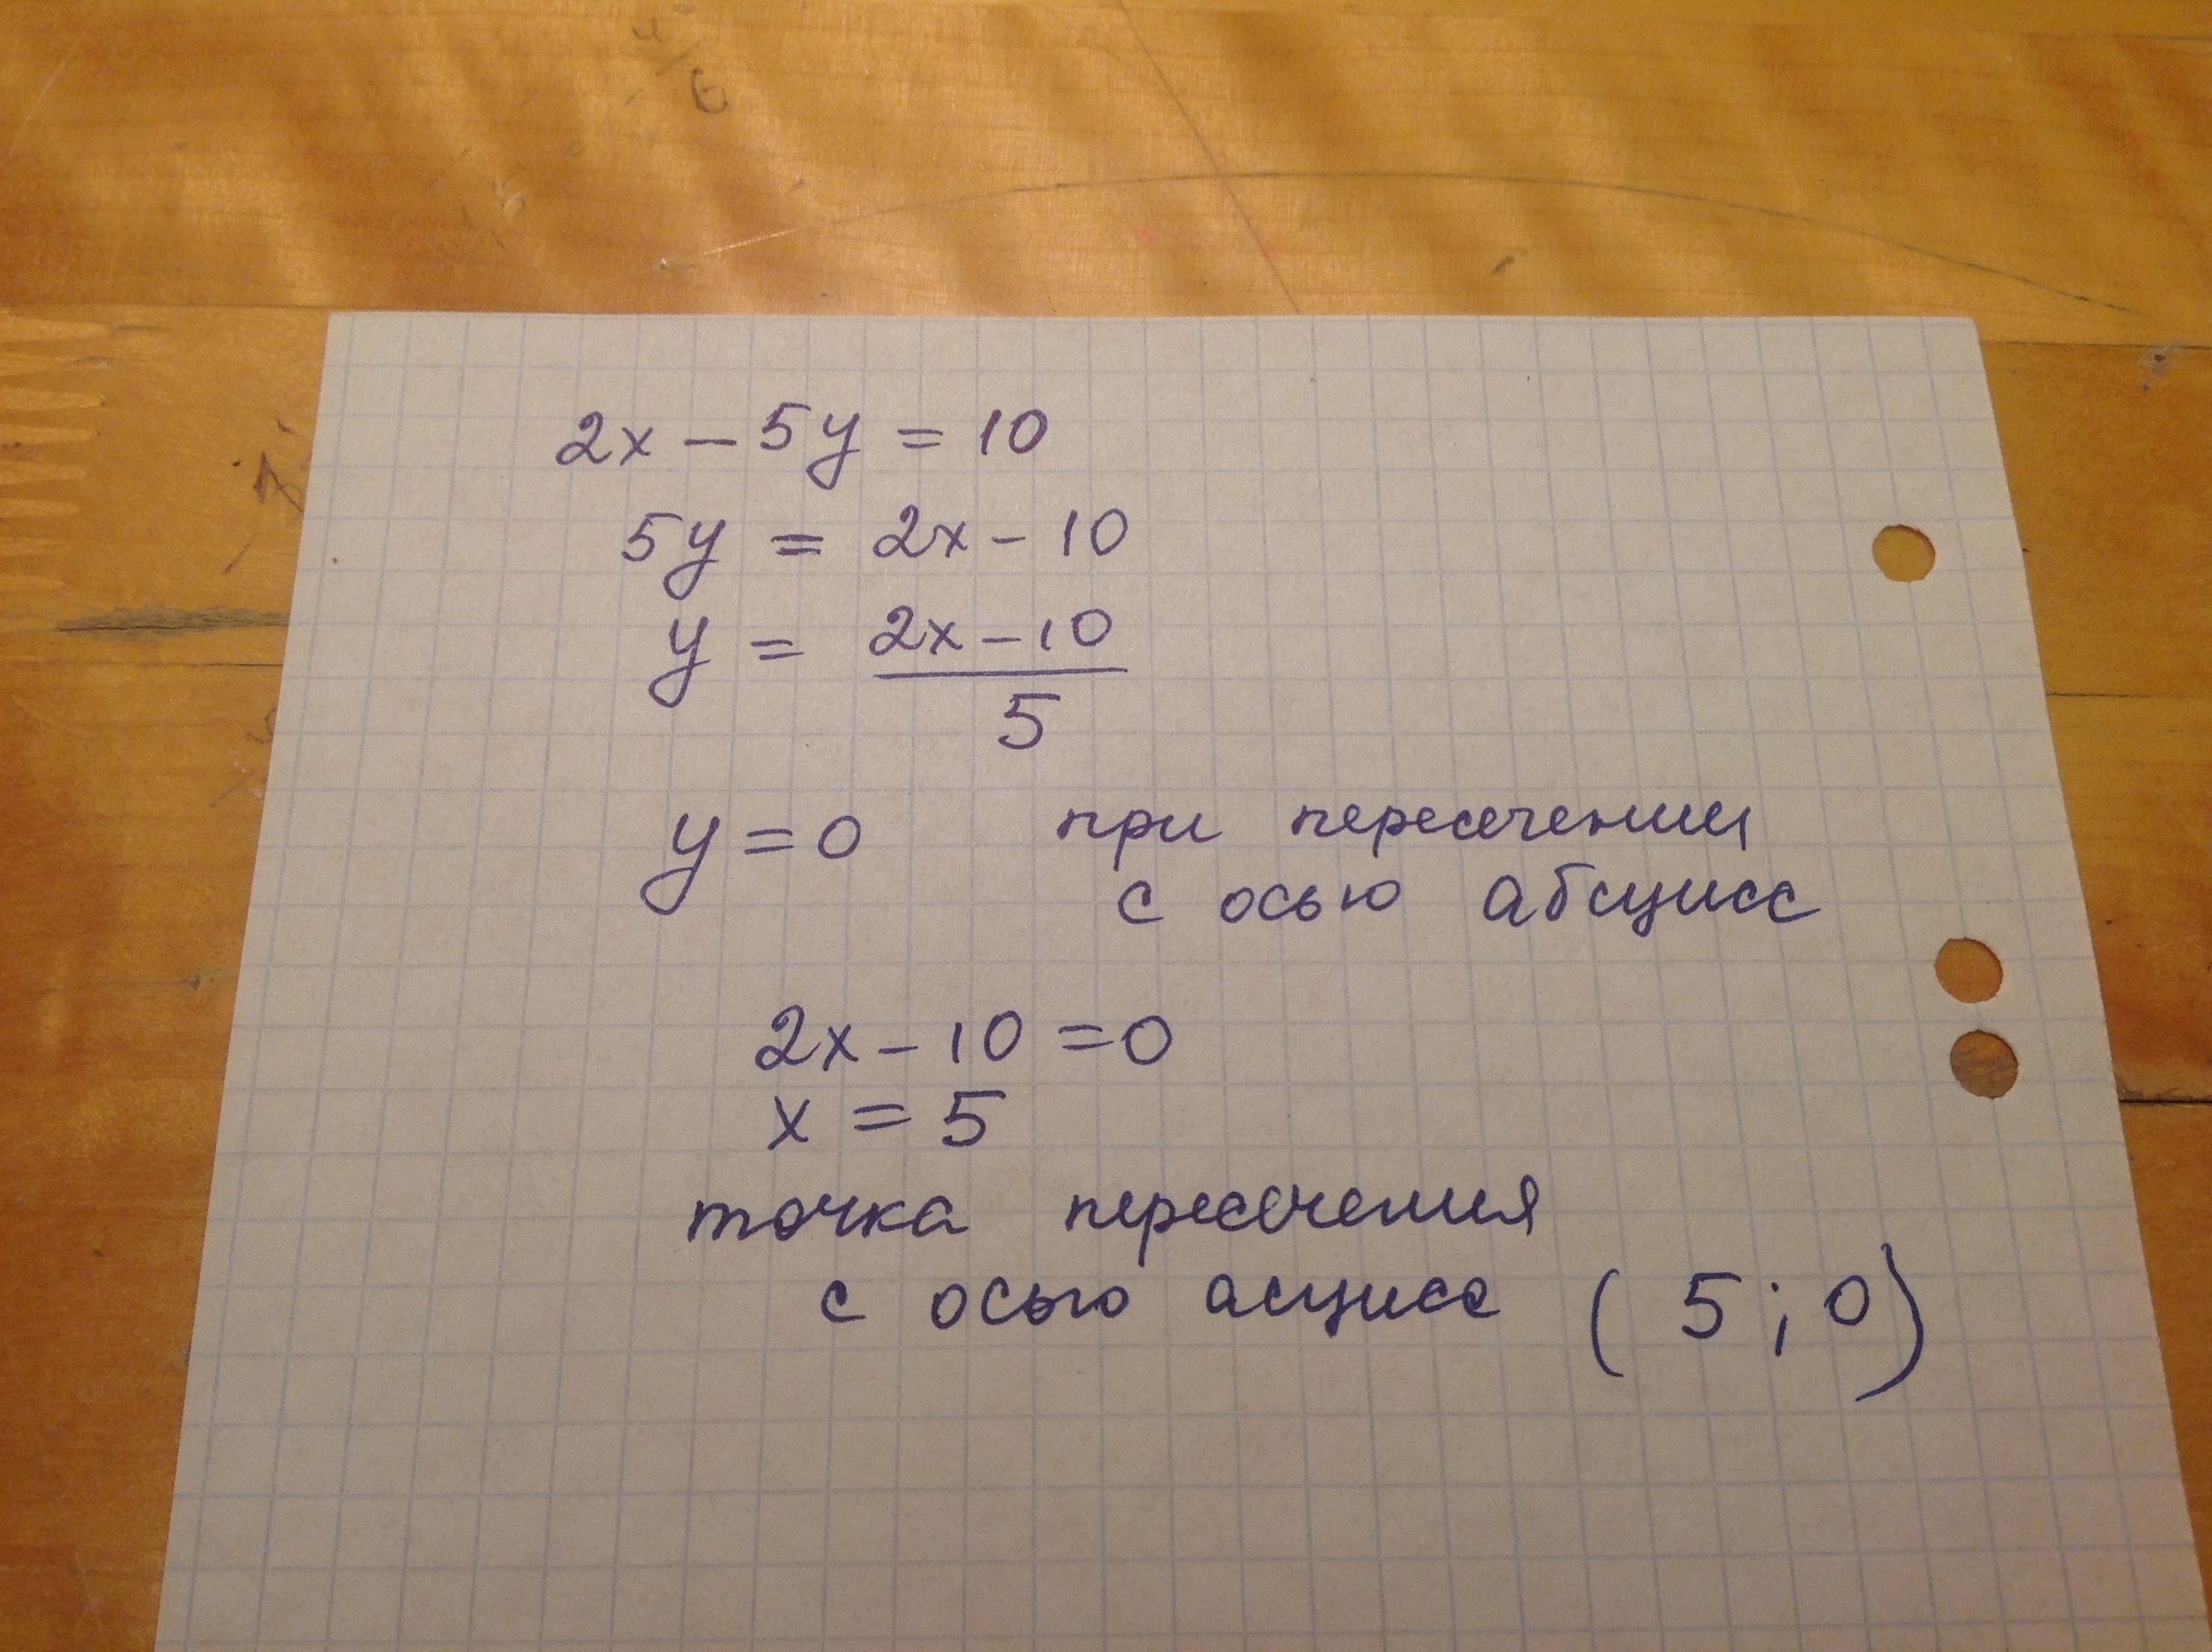 2x - 5y = 10
5y = 2x - 10
y = \frac{2x - 10}{5}
y = 0 при пересечении
с осью абсцисс
2x - 10 = 0
x = 5
точка пересечения
с осью асцисс (5; 0)